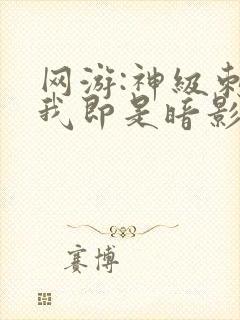 网游:神级刺
我即是暗影
赛博